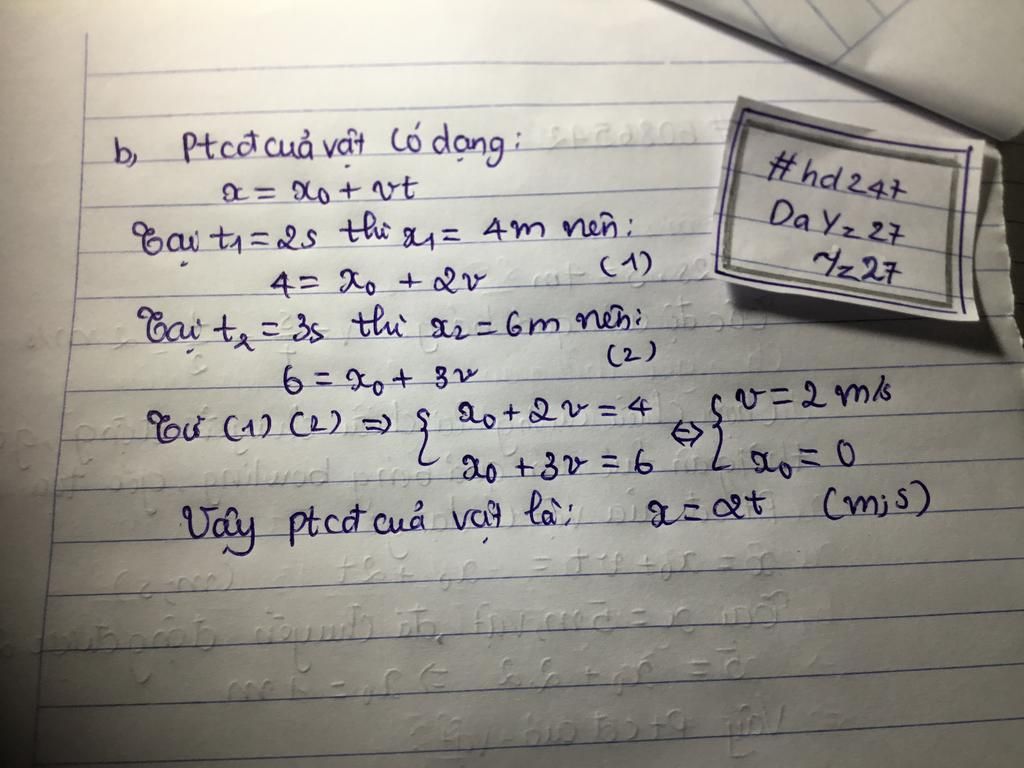 b, Ptcđ cuả vật có dạng:
x = x₀ + vt
Tại t₁ = 2s thì x₁ = 4m nên:
4 = x₀ + 2v (1)
Tại t₂ = 3s thì x₂ = 6m nên:
6 = x₀ + 3v (2)
Từ (1) (2) => { x₀ + 2v = 4 <=> { v = 2 m/s
x₀ + 3v = 6 x₀ = 0
Vậy ptcđ cuả vật là: x = 2t (m;s)
#hd247
DaY=27
27